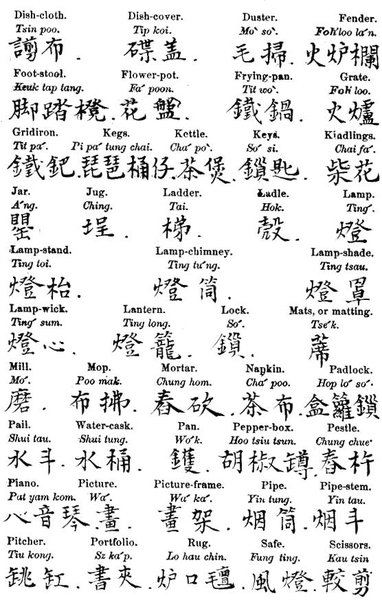 Dish-cloth. Dish-cover. Duster. Fender.
Tsin poo. Tip koi. Mo` so`. Foh' loo la`n.
布.碟蓋.毛掃.火炉欄
Foot-stool. Flower-pot. Frying-pan. Grate.
Keuk tap tang. Fa` poon. Tit wo`. Foh' loo.
脚踏櫈.花盤.鐵鍋.火爐
Gridiron. Kegs. Kettle. Keys. Kindlings.
Tit pa`. Pi pa` tung chai. Cha` po`. So` si. Chai fa`.
鐵鈀.琵琶桶仔.茶煲.鎖匙.柴花
Jar. Jug. Ladder. Ladle. Lamp.
A`ng. Ching. Tai. Hok. Ting`.
罌.埕.梯.殼.燈
Lamp-stand. Lamp-chimney. Lamp-shade.
Ting toi. Ting tu`ng. Ting tsau.
燈枱.燈筒.燈罩
Lamp-wick. Lantern. Lock. Mats, or matting.
Ting` sum. Ting long. So`. Tse`k.
燈心.燈籠.鎖.
Mill. Mop. Mortar. Napkin. Padlock.
Mo`. Poo mak. Chung hom. Cha` poo. Hop lo` so`.
磨.布拂.舂砍.茶布.盒籮鎖
Pail. Water-cask. Pan. Pepper-box. Pestle.
Shui tau. Shui tung. Wo`k. Hoo tsiu tsun. Chung chue`
水斗.水桶.鑊.胡椒罇.舂杵
Piano. Picture. Picture-frame. Pipe. Pipe-stem.
Pat yam kom. Wa`. Wa` ka`. Yin tung. Yin tau.
八音琴.畫.畫架.烟筒.烟斗
Pitcher. Portfolio. Rug. Safe. Scissors.
Tiu kong. Sz ka`p. Lo hau chin. Fung ting. Kau tsin
缸.書夾.炉口氈.風燈.較剪